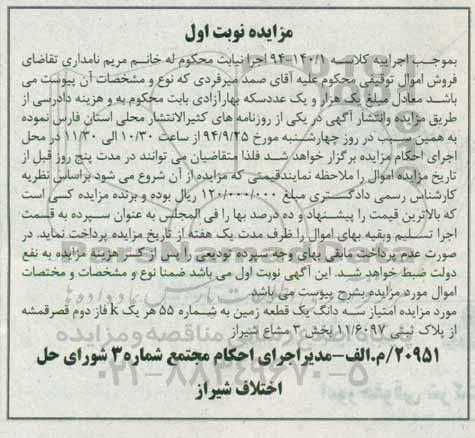 مزایده نوبت اول
بموجب اجراییه کلاسه ۹۴-۱۴۰/۱ اجرا نیابت محکوم له خانم مریم نامداری تقاضای
فروش اموال توقیفی محکوم علیه آقای صمد میرفردی که نوع و مشخصات آن پیوست می
باشد معادل مبلغ یک هزار و یک عددسکه بهارآزادی بابت محکوم به و هزینه دادرسی از
طریق مزایده وانتشار آگهی در یکی از روزنامه های کثیرالانتشار محلی استان فارس نموده
به همین سبب در روز چهارشنبه مورخ ۹۴/۹/۲۵ از ساعت ۱۰/۳۰ الی ۱۱/۳۰ در محل
اجرای احکام مزایده برگزار خواهد شد فلذا متقاضیان می توانند در مدت پنج روز قبل از
تاریخ مزایده اموال را ملاحظه نمایندقیمتی که مزایده از آن شروع می شود براساس نظریه
کارشناس رسمی دادگستری مبلغ ۱۲۰/۰۰۰/۰۰۰ ریال بوده و برنده مزایده کسی است
که بالاترین قیمت را پیشنهاد و ده درصد بها را فی المجلس به عنوان سپرده به قسمت
اجرا تسلیم وبقیه بهای اموال را ظرف مدت یک هفته از تاریخ مزایده پرداخت نماید. در
صورت عدم پرداخت مابقی بهای وجه سپرده تودیعی را پس از کسر هزینه مزایده به نفع
دولت ضبط خواهد شد. این آگهی نوبت اول می باشد ضمنا نوع و مشخصات و مختصات
اموال مورد مزایده بشرح پیوست می باشد
مورد مزایده امتیاز سه دانگ یک قطعه زمین به شماره ۵۵ هر یک k فاز دوم قصرقمشه
از پلاک ثبتی ۱۱/۶۰۹۷ بخش ۳ مشاع شیراز
۲۰۹۵۱/م.الف-مدیراجرای احکام مجتمع شماره۳ شورای حل
اختلاف شیراز
۰۲۱-۸۸۳۴۹۶۷۰-۵